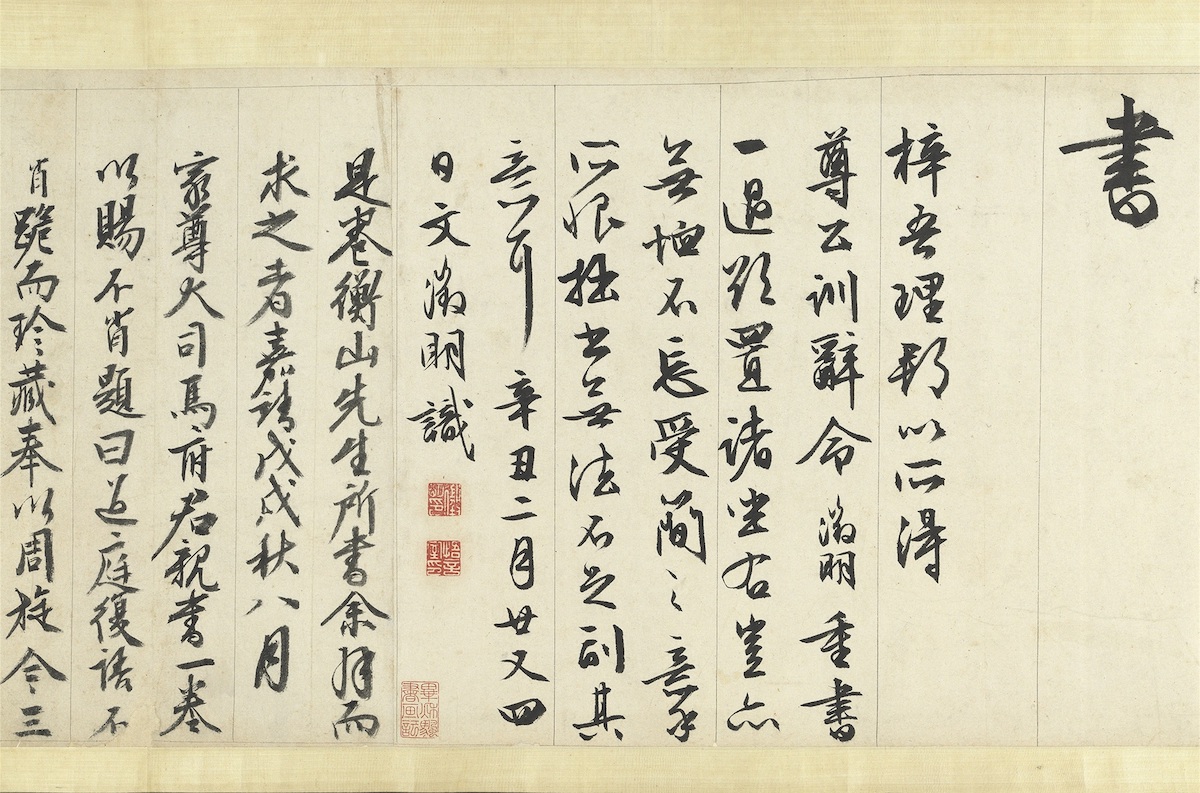 書
梓吾理邢以所得
尊公訓辭令徵明重書
一過欲置諸坐右豈亦
無恤不忘受簡之意乎
所恨拙書無法不足副其
意耳辛丑二月廿又四
日文徵明識
徵明印
悟言室印
是卷衡山先生所書余拜而
求之者嘉靖戊戌秋八月
家尊大司馬府君親書一卷
以賜不肖題曰過庭復語不
肖跪而珍藏奉以周旋今三